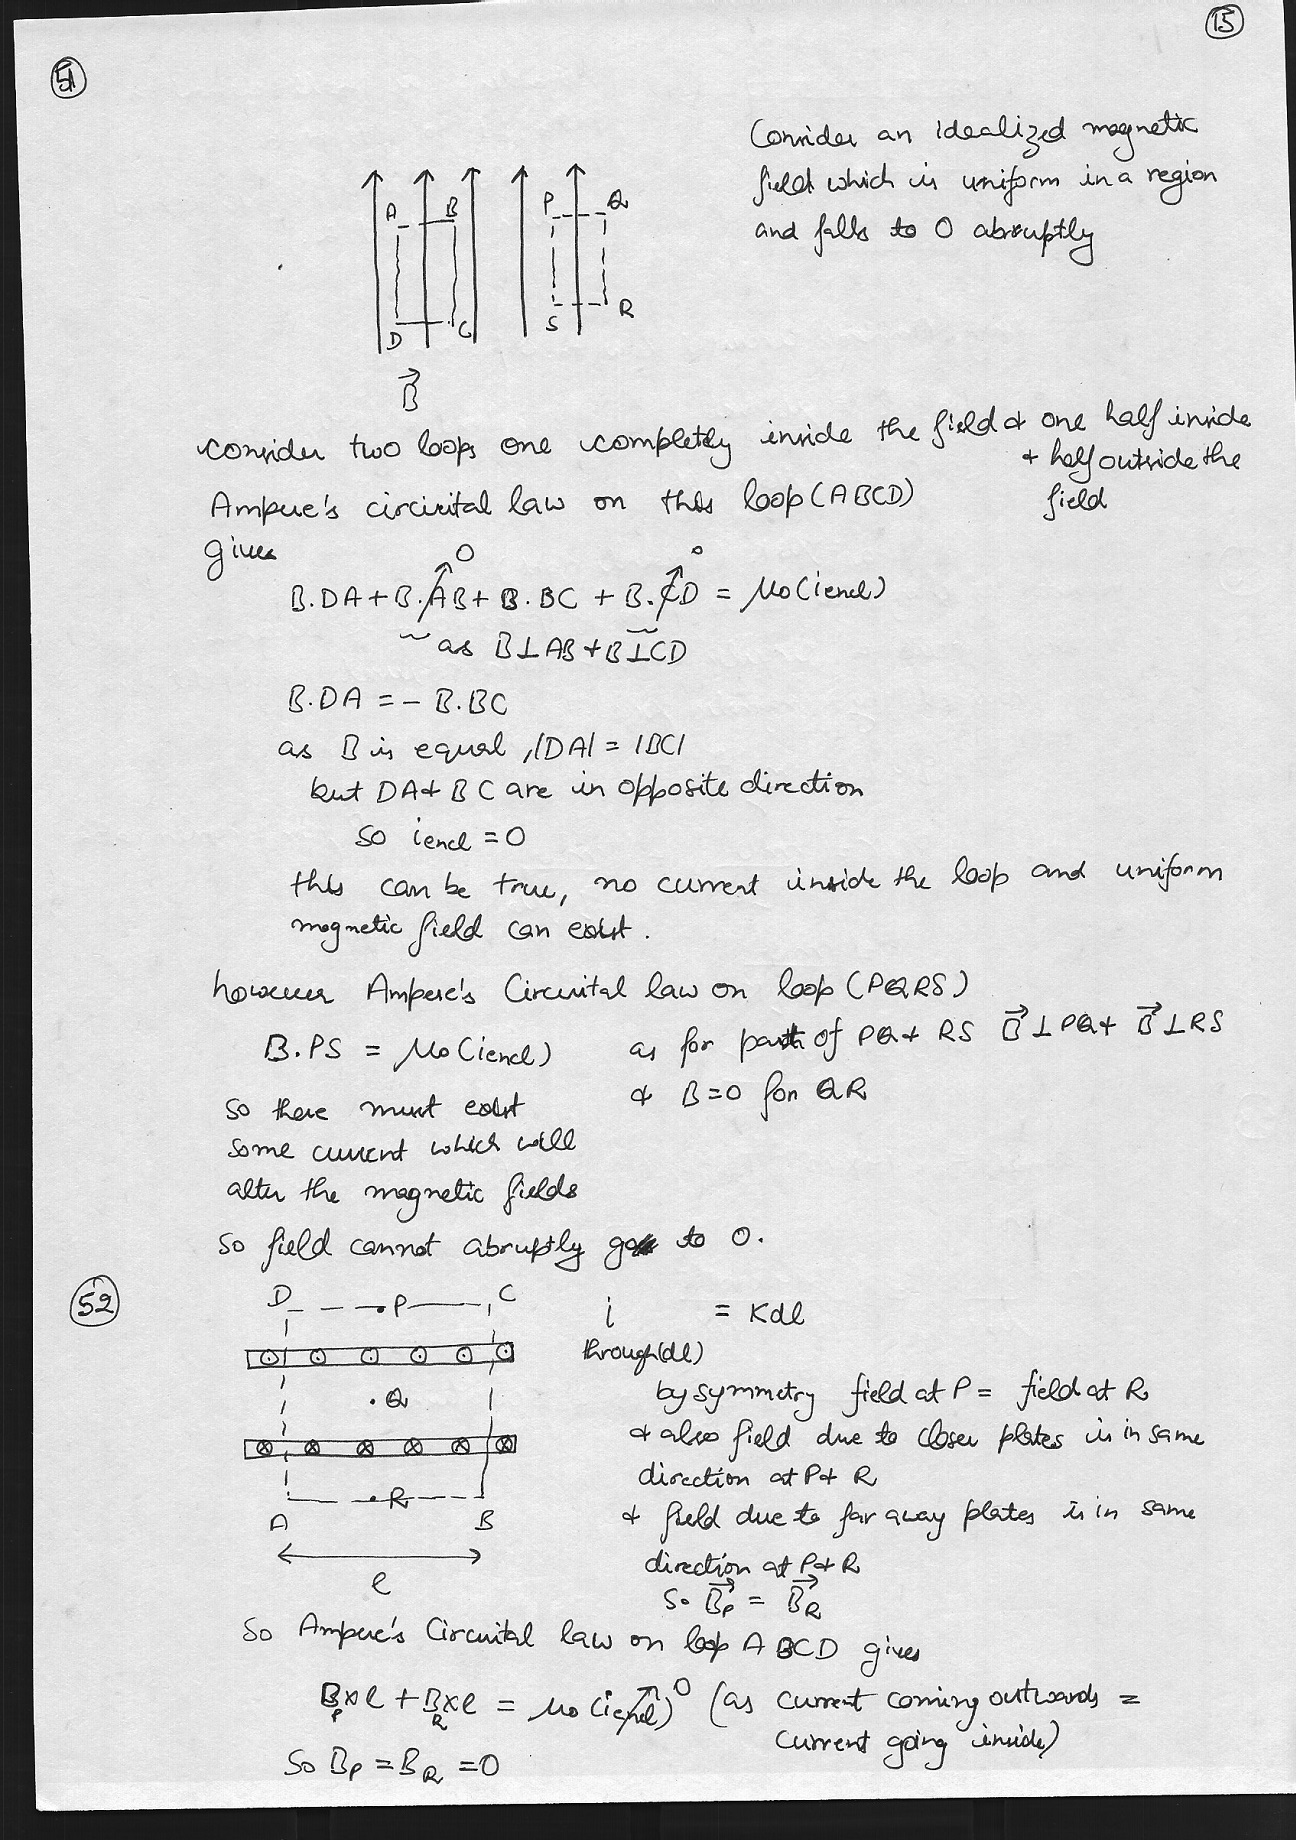 15
51
Consider an idealized magnetic
field which is uniform in a region
and falls to 0 abruptly
A B P Q
D C S R
B
consider two loops one completely inside the field & one half inside
& half outside the
field
Ampere's circuital law on this loop (ABCD)
gives
0 0
B.DA + B.AB + B.BC + B.CD = μ0(iencl)
as B⊥AB & B⊥CD
B.DA = - B.BC
as B is equal, |DA| = |BC|
but DA & BC are in opposite direction
so iencl = 0
this can be true, no current inside the loop and uniform
magnetic field can exist.
however Ampere's Circuital law on loop (PQRS)
B.PS = μ0(iencl) as for path of PQ & RS B⊥PQ & B⊥RS
& B=0 for QR
so there must exist
some current which will
alter the magnetic fields
so field cannot abruptly go to 0.
52
D P C
Q
R
A B
l
i through(dl) = Kdl
by symmetry field at P = field at R
& also field due to closer plates is in same
direction at P & R
& field due to far away plates is in same
direction at P & R
So BP = BR
So Ampere's Circuital law on loop ABCD gives
BP×l + BR×l = μ0(iencl) 0 (as current coming outwards =
current going inside)
So BP = BR = 0